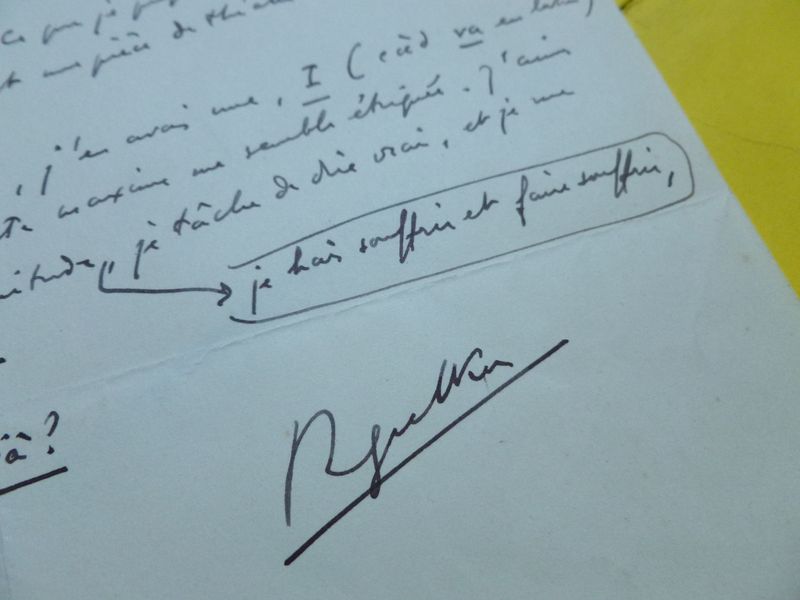 ce que je
une pièce de
, j'en avais une, I (càd va en latin)
maxime me semble étriquée. J'aime
, je tâche de dire vrai, et je me
je hais souffrir et faire souffrir,
?